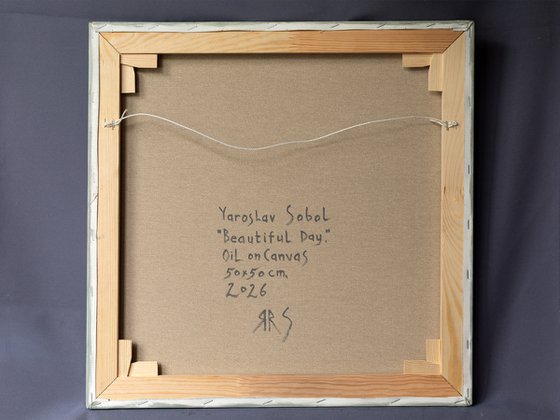 Yaroslav Sobol
"Beautiful Day."
Oil on Canvas
50x50cm
2026
ЯR S